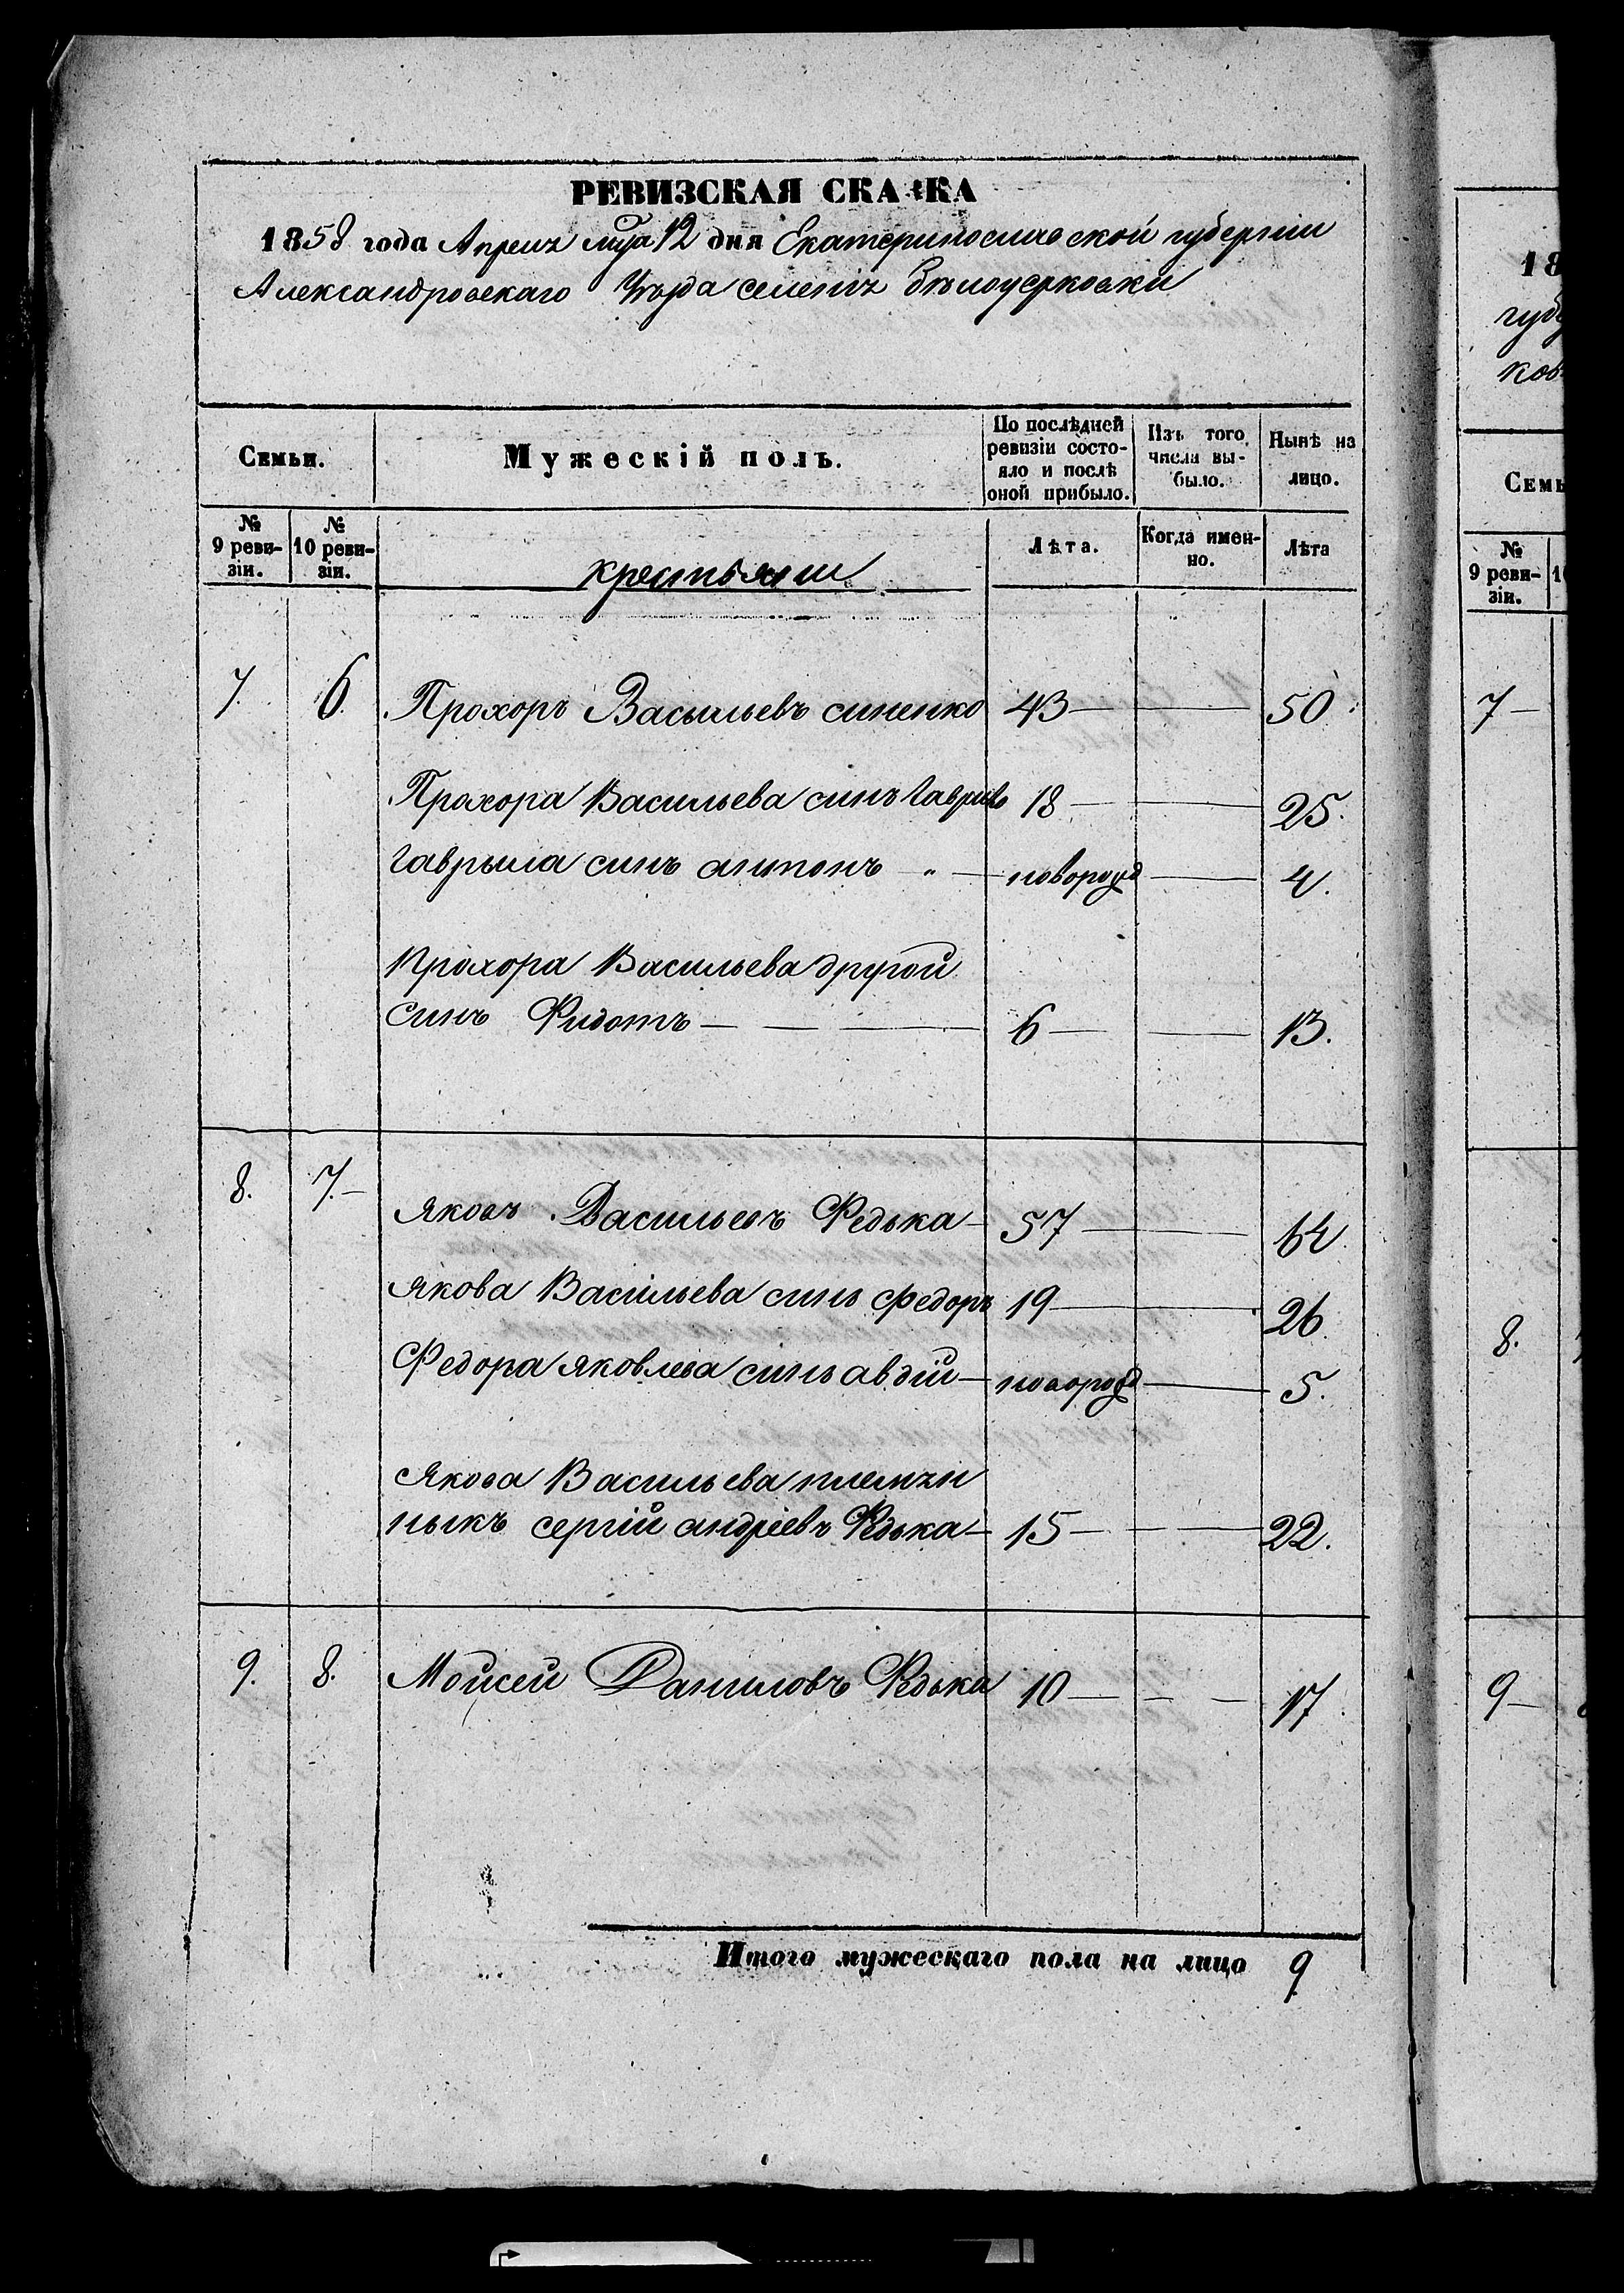 РЕВИЗСКАЯ СКАЗКА
1858 года Апреля мца 12 дня Екатеринославской губернии
Александровскаго Уѣзда селенія Бѣлоцерковки
Семьи.
Мужескій полъ.
По послѣдней ревизіи состояло и послѣ оной прибыло.
Изъ того числа выбыло.
Нынѣ на лицо.
№ 9 ревизіи.
№ 10 ревизіи.
крестьяни
Лѣта.
Когда именно.
Лѣта
7. 6. Прохоръ Васыльевъ синенко 43 — — 50
Прохора Васильева синъ Гаврило 18 — — 25.
Гаврыла синъ антонъ " — новорожд — 4.
Прохора Васильева другой
синъ Фидотъ — — — 6 — — 13.
8. 7. — Яковъ Васильевъ Редька — 57 — — 64.
Якова Васильева синъ Федоръ 19 — — 26.
Федора Яковлева синъ авдій — новорожд — 5.
Якова Васильева племян
ныкъ сергій андріевъ Редька — 15 — — 22.
9. 8. Мойсей Даниловъ Редька 10 — — — 17
Итого мужескаго пола на лицо 9
18
губе
ков
Семь
№ 9 ревизіи.
7 —
8.
9 —